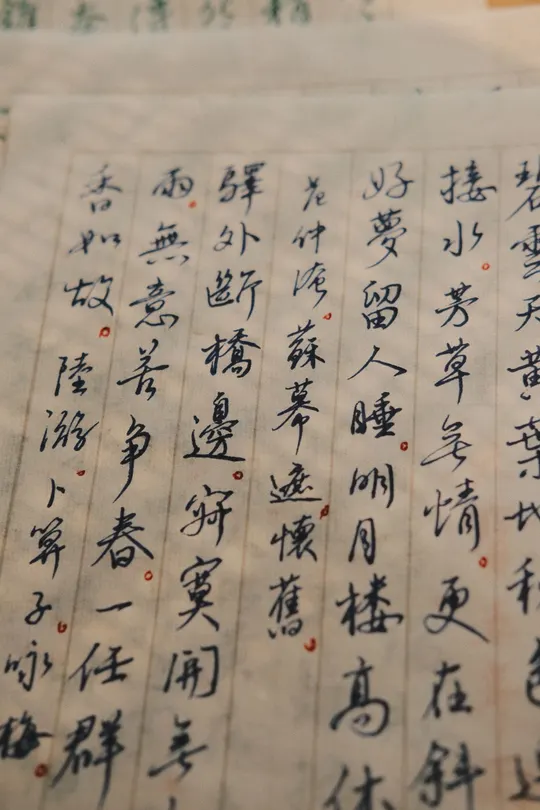 碧雲天黄葉地秋色連
接水。芳草无情。更在斜
好夢留人睡。明月楼高休
范仲淹。蘇幕遮。懷舊。
驛外斷橋邊。寂寞開无
雨。無意苦争春。一任群
香如故。陸游。卜算子。咏梅。